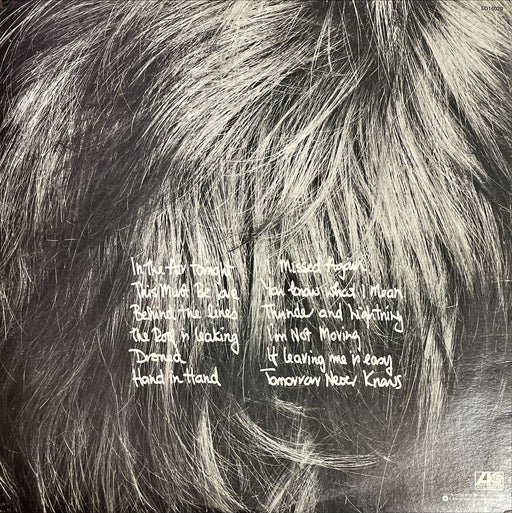 SD16029
In the Air Tonight
This Must Be Love
Behind the lines
The Roof is leaking
Droned
Hand in Hand
I Missed Again
You know what I Mean
Thunder and Lightning
I'm Not Moving
If leaving me is easy
Tomorrow Never Knows
ATLANTIC